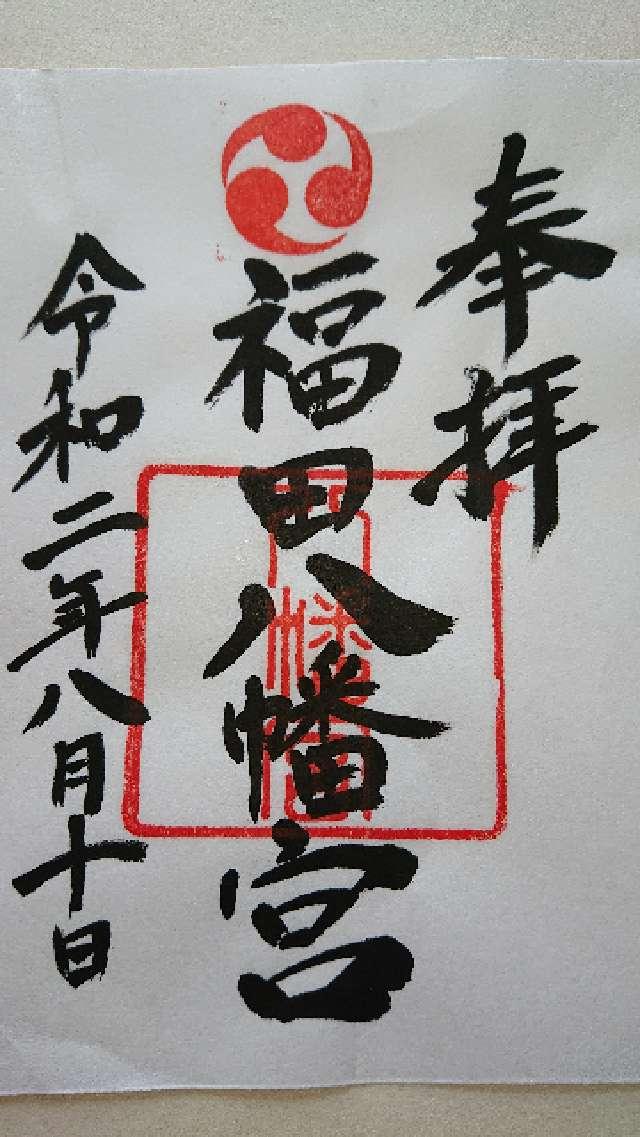 奉拝
福田八幡宮
令和二年八月十日